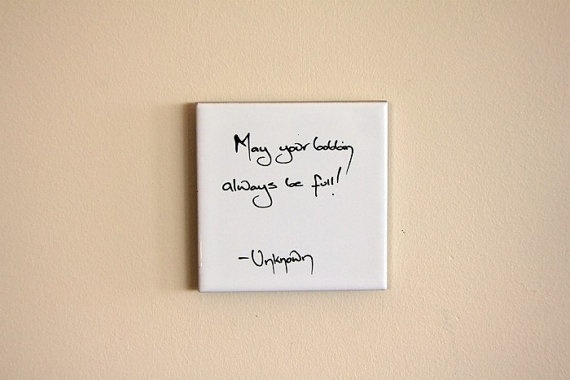 May your bobbin
always be full!
-Unknown